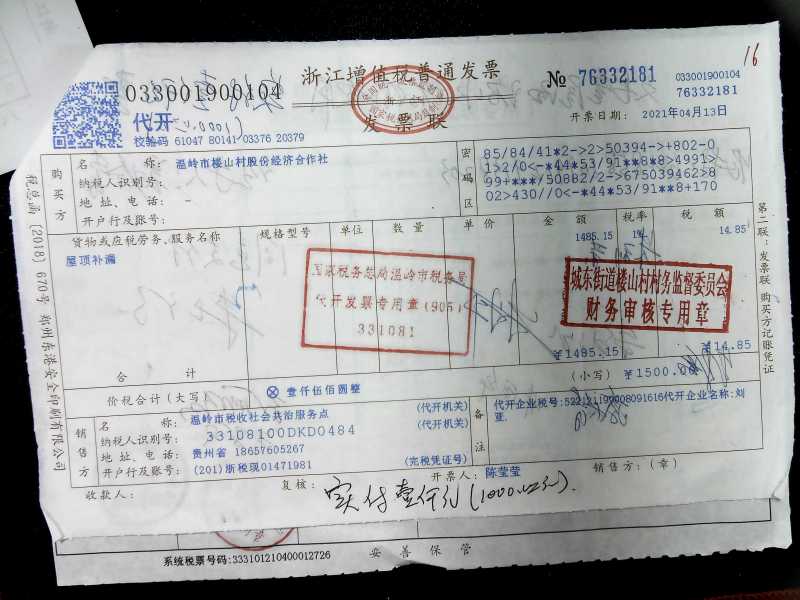 16
浙江增值税普通发票
033001900104
代开
发票联
№ 76332181
033001900104
76332181
开票日期: 2021年04月13日
校验码 61047 80141 03376 20379
购买方
名称: 温岭市楼山村股份经济合作社
纳税人识别号:
地址、电话: -
开户行及账号:
密码区
85/84/41*2->2>50394->+802-0
1>2/0<-*44*53/91**8*8>4991>
99+***/50882/2->675039462>8
02>430//0<-*44*53/91**8+170
货物或应税劳务、服务名称 规格型号 单位 数量 单价 金额 税率 税额
屋顶补漏 1485.15 1% 14.85
国家税务总局温岭市税务局
代开发票专用章(905)
331081
城东街道楼山村村务监督委员会
财务审核专用章
合计 ¥1485.15 ¥14.85
价税合计(大写) ⊗ 壹仟伍佰圆整 (小写) ¥1500.00
销售方
名称: 温岭市税收社会共治服务点 (代开机关)
纳税人识别号: 33108100DKD0484 (代开机关)
地址、电话: 贵州省 18657605267
开户行及账号: (201)浙税现01471981 (完税凭证号)
备注
代开企业税号:522121199008091616代开企业名称:刘
亚.
收款人: 复核: 开票人: 陈莹莹 销售方:(章)
实付壹仟元(1000.00元).
税总函〔2018〕670号 郑州东港安全印刷有限公司
第二联:发票联 购买方记账凭证
系统税票号码:333101210400012726 妥善保管